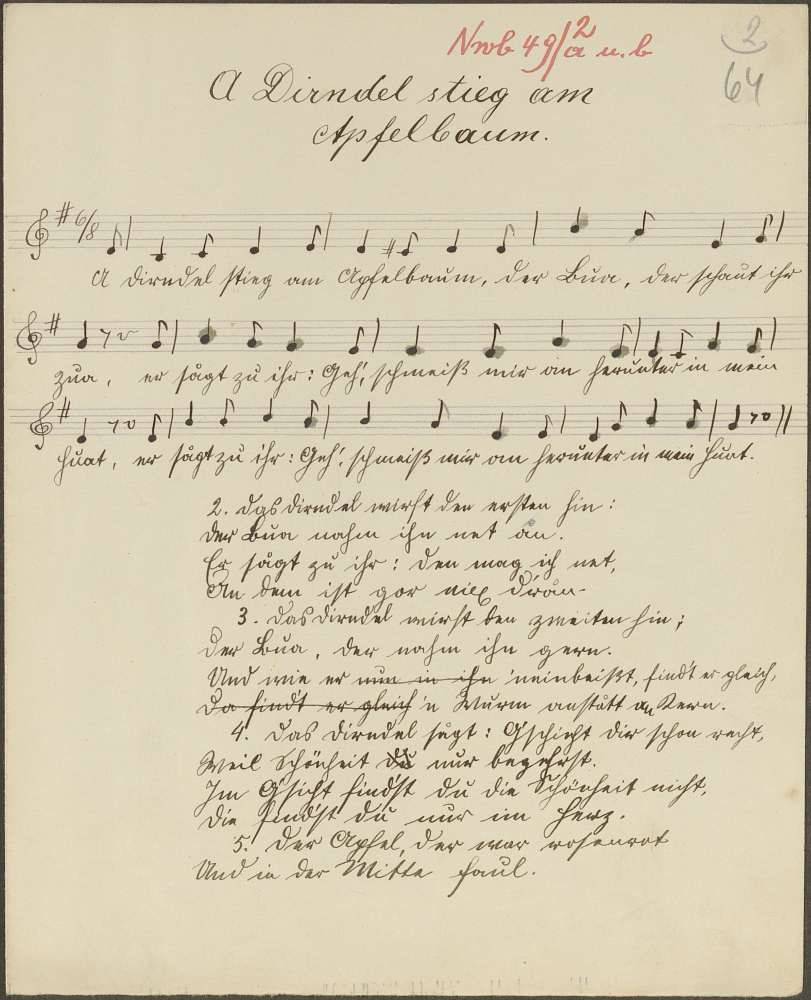 Nwb 49/2 a u. b
2
64
A Dirndel stieg am
Apfelbaum.
6/8
A Dirndel stieg am Apfelbaum, der Bua, der schaut ihr
zua, er sågt zu ihr: Geh', schmeiß mir an herunter in mein
Huat, er sågt zu ihr: Geh', schmeiß mir an herunter in mein Huat.
2. Das Dirndel wirft den ersten hin:
Der Bua nahm ihn net ån.
Er sågt zu ihr: Den mag ich net,
An dem ist gor nix drån.
3. Das Dirndel wirft den zweiten hin;
Der Bua, der nahm ihn gern.
Und wie er nun in ihn 'neinbeißt, find't er gleich,
Da find't er gleich 'n Wurm anstått an Kern.
4. Das Dirndel sågt: G'schieht dir schon recht,
Weil Schönheit du nur begehrst.
Im G'sicht find'st du die Schönheit nicht,
Die find'st du nur im Herz.
5. Der Apfel, der war rosenrot
Und in der Mitte faul.